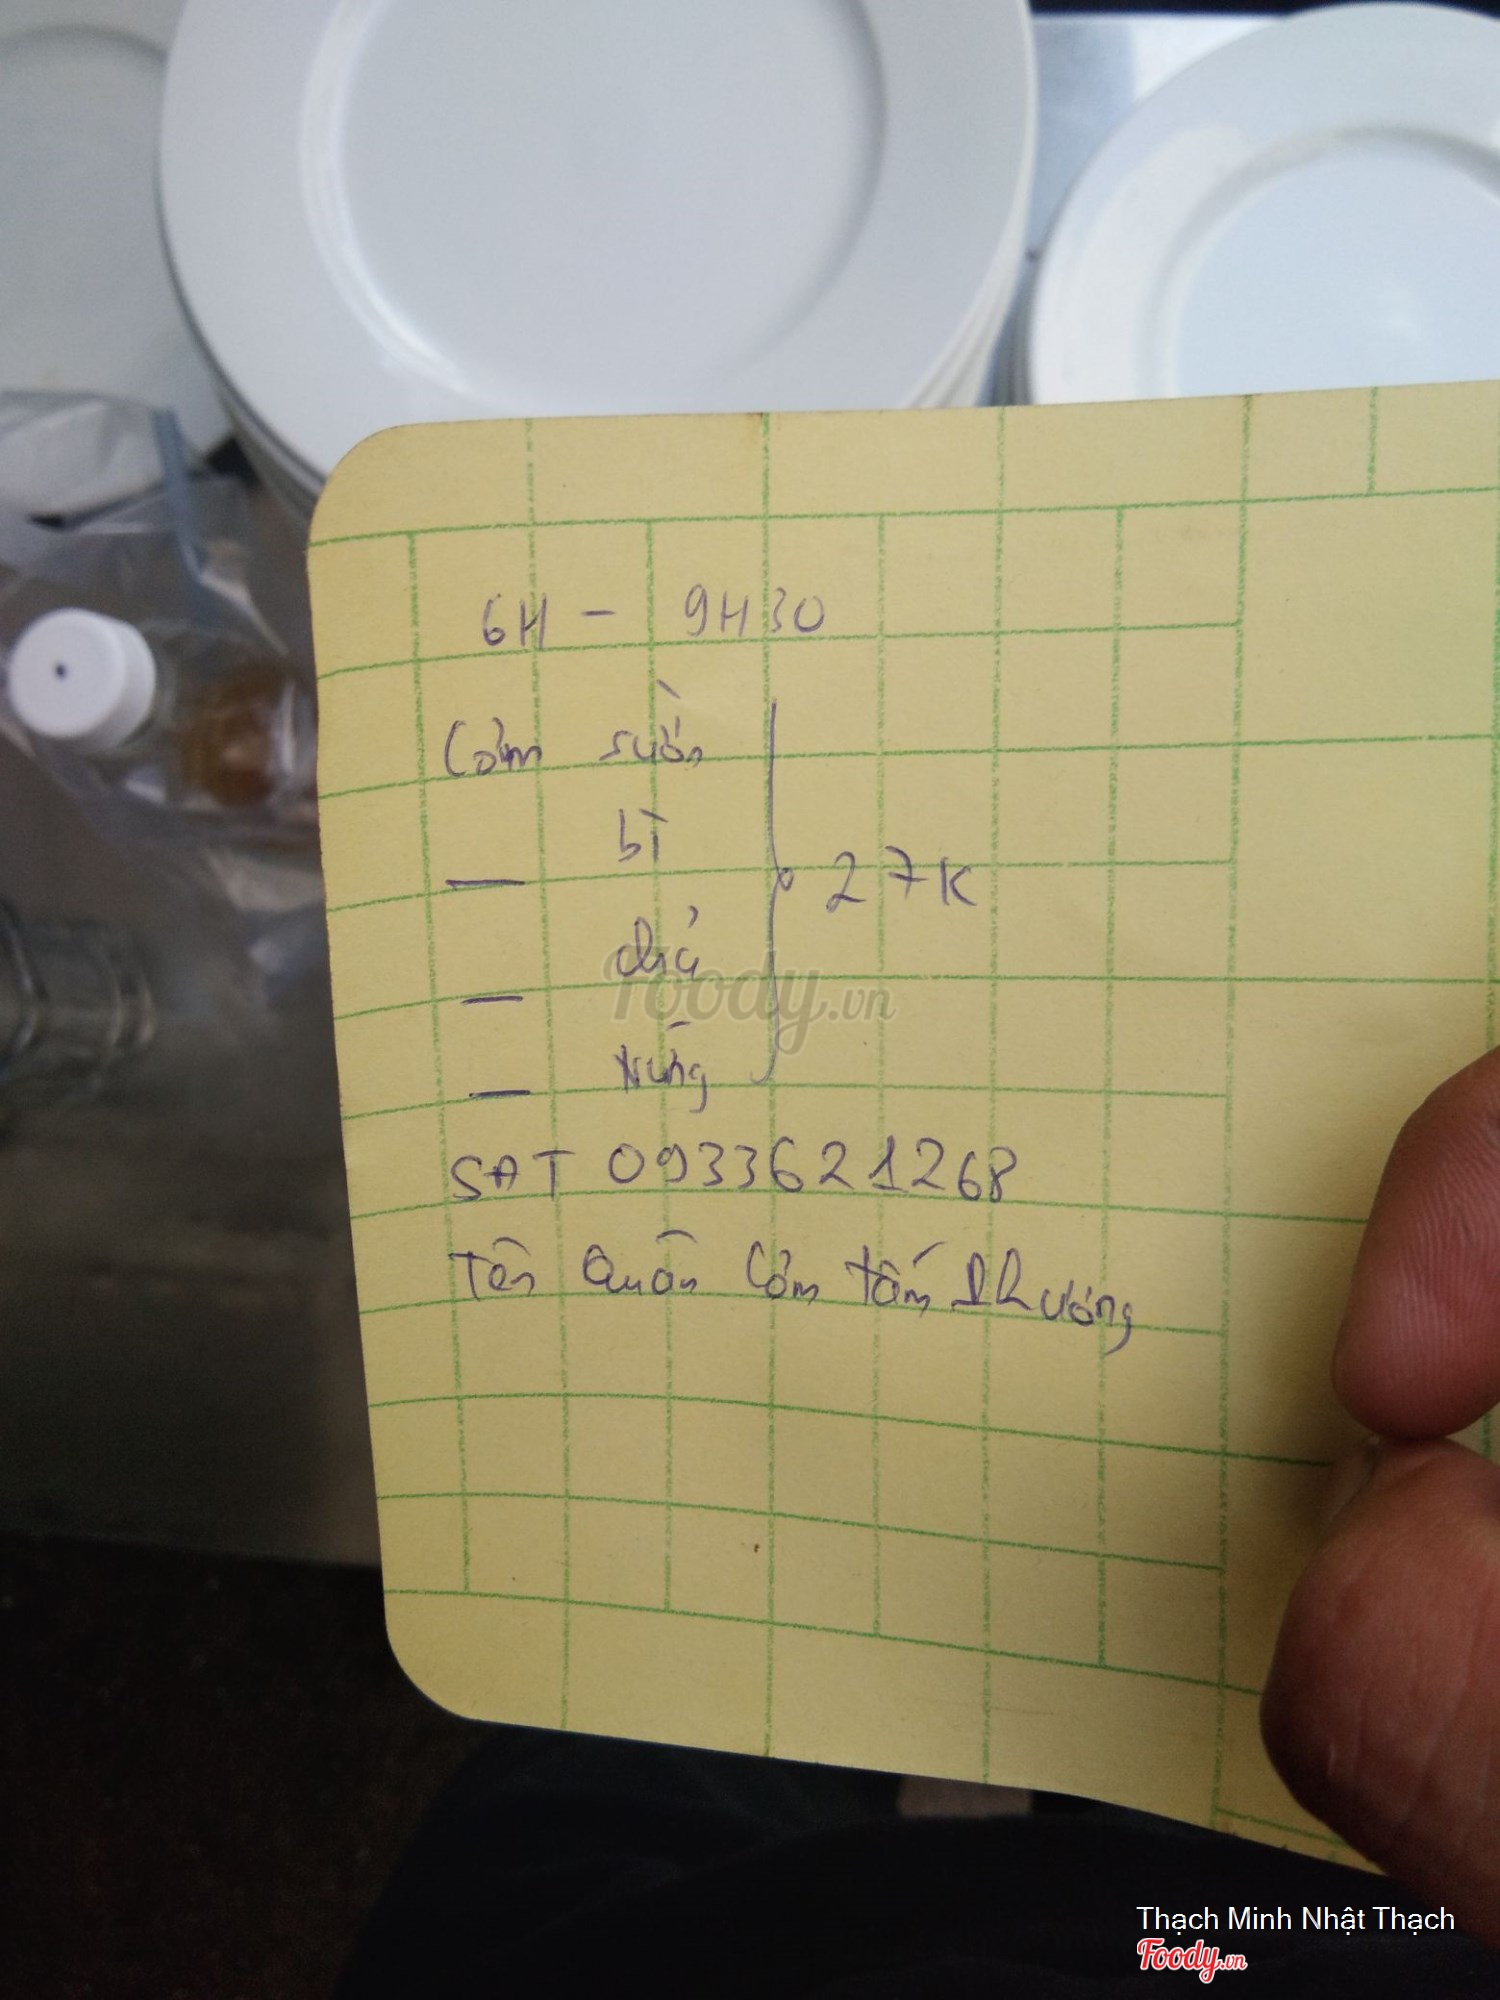 6H - 9H30
Cơm sườn
— bì
— chả
— trứng
27K
SĐT 0933621268
Tên Quán Cơm tấm Phương
Foody.vn
Thạch Minh Nhật Thạch
Foody.vn